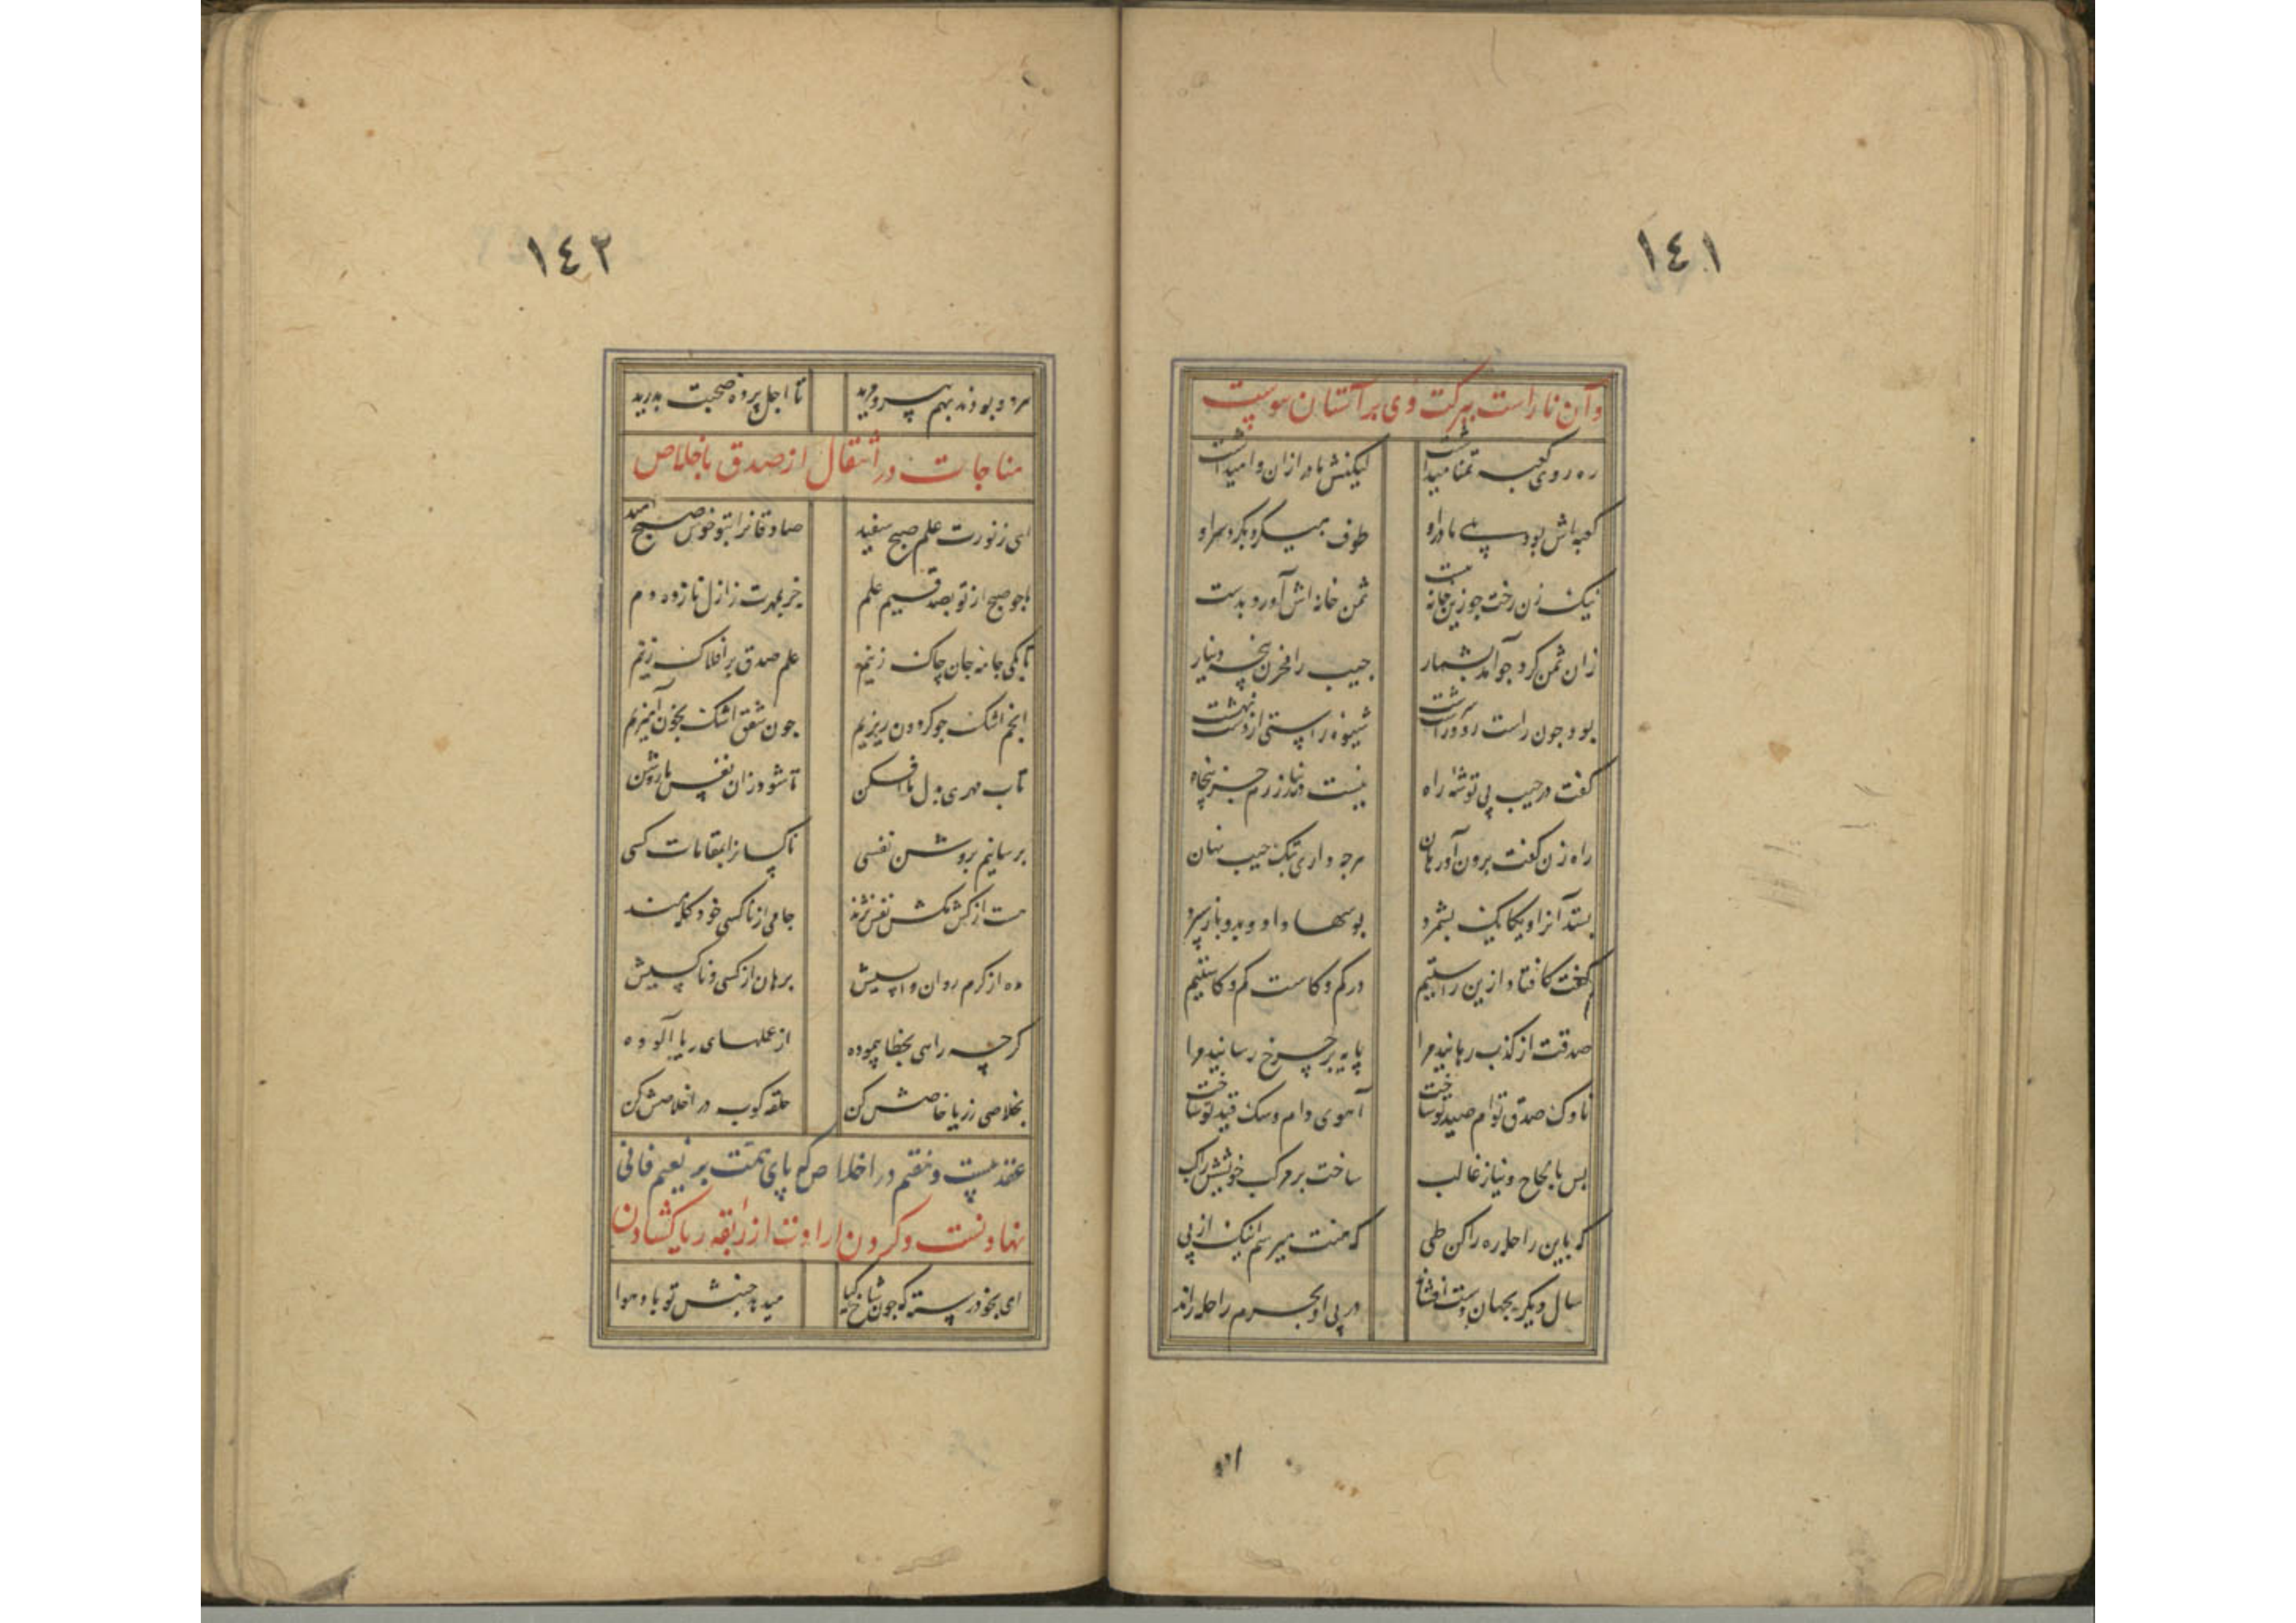 ١٤١
وآن ناراست ببرکت وی بر آستان سوست
ره روی کعبه تمنا میداشت لیکنش مادر ازان وا میداشت
کعبه‌اش بود سپے مادر او طوف میکرد بکرد سر او
نیک زن رخت جو زین خانه ببست ثمن خانه اش آورد بدست
زان ثمن کرد جو آمد بشمار جیب را مخزن پنجه دینار
بود جون راست رو و راست سرشت شیوه راستی از دست نهشت
گفت در جیب پی توشه راه نیست دینار زرم جز پنجاه
راه زن گفت برون آور هان هرجه داری بتک جیب نهان
بستد آنرا و یکایک بشمرد بوسها داد و بدو باز سپرد
گفت کافتاد ازین راستیم در کم و کاست کم و کاستیم
صدقت از کذب رهانید مرا پایه بر چرخ رسانید مرا
ناوک صدق توام صید تو ساخت آهوی دام و سک قید تو ساخت
بس بالحاح و نیاز غالب ساخت بر مرکب خویشش راکب
که باین راحله ره را کن طی که منت میرسم اینک از پی
سال دیکر بجهان دست افشاند در پی او بحرم راحله راند
١٤٢
هردو بودند بهم پیر و مرید تا اجل پرده صحبت بدرید
مناجات در انتقال از صدق باخلاص
ای ز نورت علم صبح سفید صادقانرا بتو خوش صبح امید
ما جو صبح از تو بصدقیم علم جز بمهرت ز ازل نازده دم
تا بکی جامه جان چاک زنیم علم صدق بر افلاک زنیم
انجم اشک جو کردون ریزیم جون شفق اشک بخون آمیزیم
تاب مهری بدل ما افکن تا شود زان نفس ما روشن
برسانیم بروشن نفسی ناکسانرا بمقامات کسی
هست از کش مکش نفس نژند جامی از ناکسی خود کله مند
ده از کرم روان واپسیش برهان از کسی و ناکسیش
کرچه راهی بخطا پیموده از عملهای ریا آلوده
بخلاصی ز ریا خاصش کن حلقه کوب در اخلاصش کن
عقد بیست و نهم در اخلاص که پای همت بر نعیم فانی
نهادنست و کردن ارادت از ربقه ریا کشادن
ای بخود رسته که جون شاخ کیا میدهد جنبش تو باد هوا